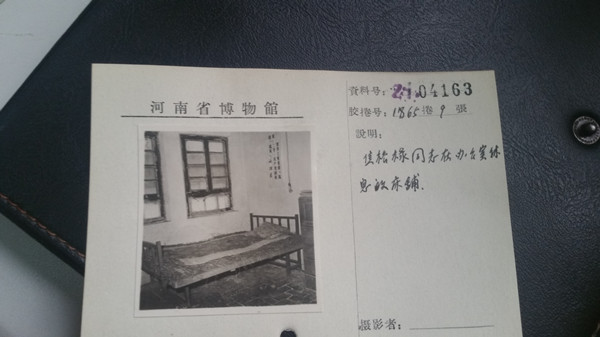 河南省博物館
資料号：2104163
胶捲号：1865捲9張
說明：
焦裕禄同志在办公室休
息的床鋪．
攝影者：